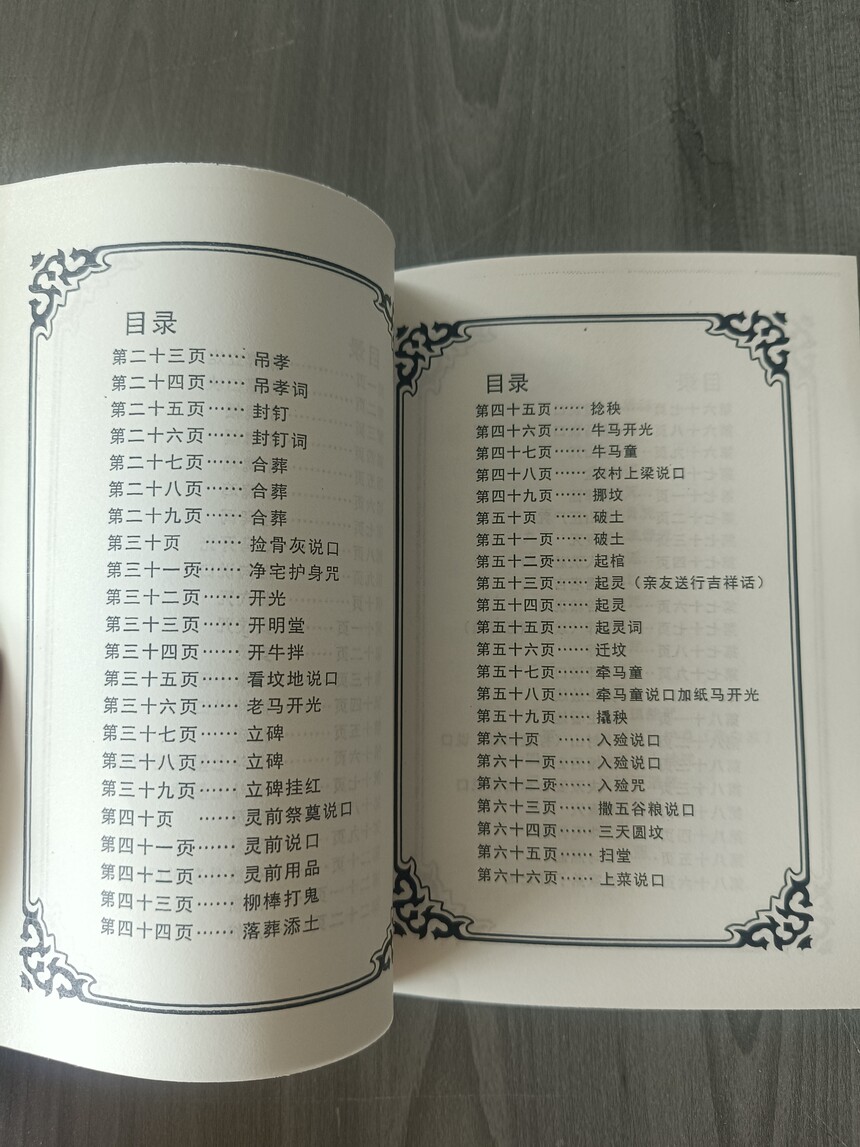 目录
第二十三页…… 吊孝
第二十四页…… 吊孝词
第二十五页…… 封钉
第二十六页…… 封钉词
第二十七页…… 合葬
第二十八页…… 合葬
第二十九页…… 合葬
第三十页 …… 捡骨灰说口
第三十一页…… 净宅护身咒
第三十二页…… 开光
第三十三页…… 开明堂
第三十四页…… 开牛拌
第三十五页…… 看坟地说口
第三十六页…… 老马开光
第三十七页…… 立碑
第三十八页…… 立碑
第三十九页…… 立碑挂红
第四十页 …… 灵前祭奠说口
第四十一页…… 灵前说口
第四十二页…… 灵前用品
第四十三页…… 柳棒打鬼
第四十四页…… 落葬添土
目录
第四十五页…… 捻秧
第四十六页…… 牛马开光
第四十七页…… 牛马童
第四十八页…… 农村上梁说口
第四十九页…… 挪坟
第五十页 …… 破土
第五十一页…… 破土
第五十二页…… 起棺
第五十三页…… 起灵（亲友送行吉祥话）
第五十四页…… 起灵
第五十五页…… 起灵词
第五十六页…… 迁坟
第五十七页…… 牵马童
第五十八页…… 牵马童说口加纸马开光
第五十九页…… 撬秧
第六十页 …… 入殓说口
第六十一页…… 入殓说口
第六十二页…… 入殓咒
第六十三页…… 撒五谷粮说口
第六十四页…… 三天圆坟
第六十五页…… 扫堂
第六十六页…… 上菜说口